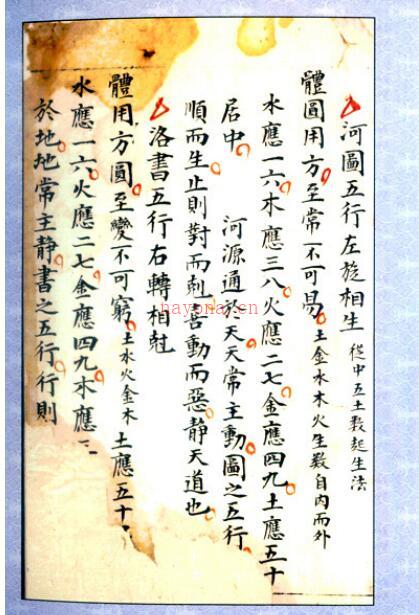 河圖五行左旋相生 從中五土數起生法
體圓用方至常不可易 土金水木火生數自內而外
水應一六木應三八火應二七金應四九土應五十
居中 河源通於天天常主動圖之五行
順而生止則對而剋吾動而惡静天道也
洛書五行右轉相尅
體用方圓至變不可窮 土水火金木 土應五十
水應一六火應二七金應四九木應三
於地地常主静書之五行行則
nayona.cn